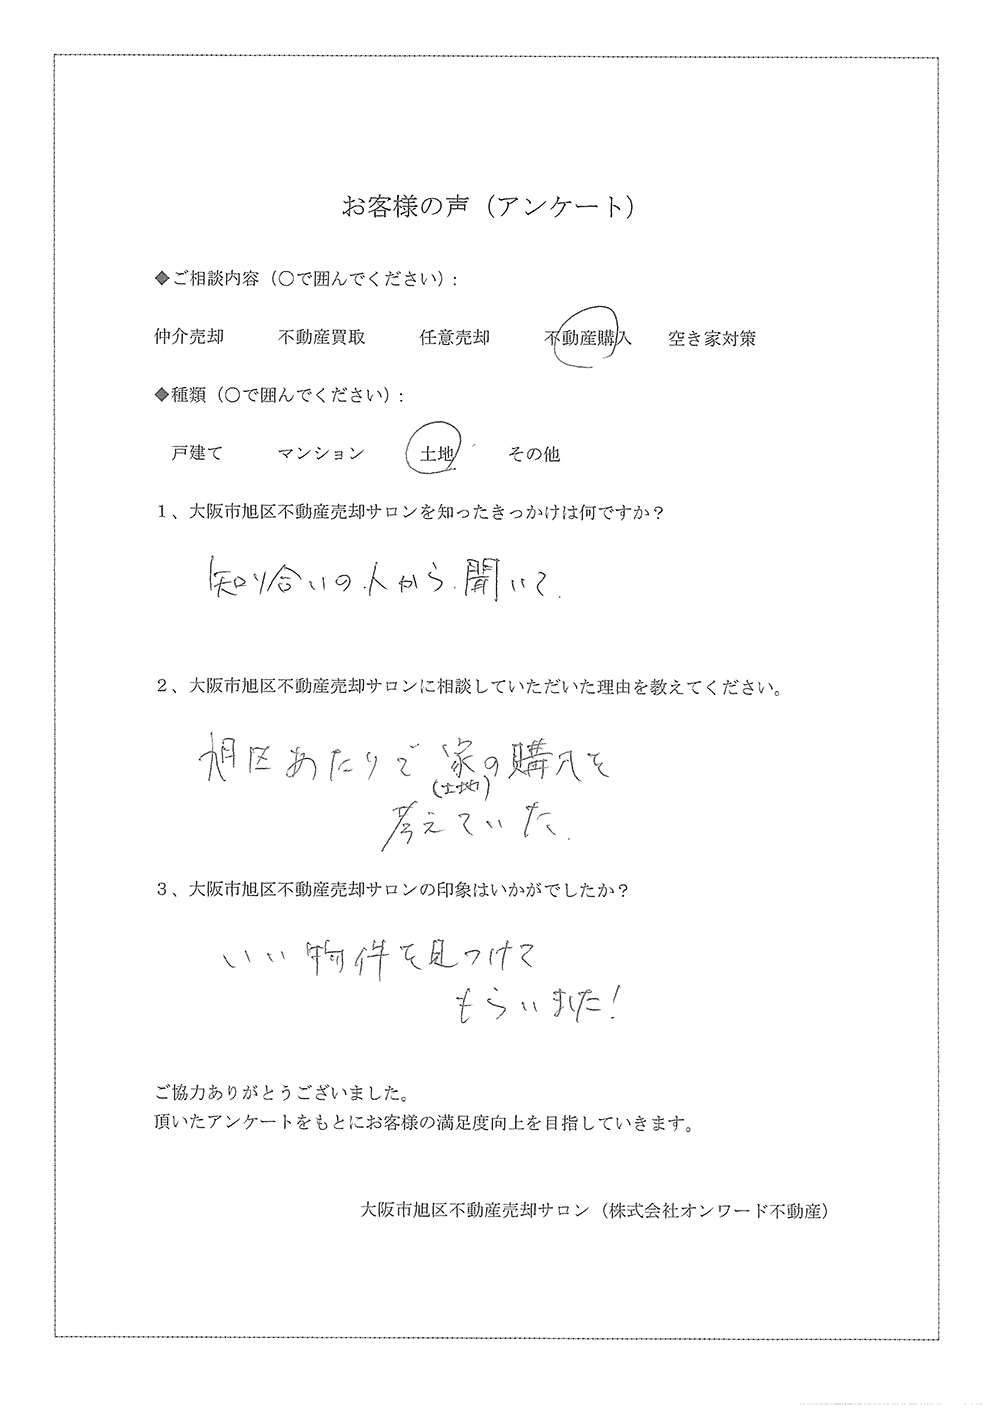 お客様の声（アンケート）
◆ご相談内容（〇で囲んでください）:
仲介売却 不動産買取 任意売却 不動産購入 空き家対策
◆種類（〇で囲んでください）:
戸建て マンション 土地 その他
１、大阪市旭区不動産売却サロンを知ったきっかけは何ですか？
知り合いの人から聞いて.
２、大阪市旭区不動産売却サロンに相談していただいた理由を教えてください。
旭区あたりで家の購入を
(土地)
考えていた.
３、大阪市旭区不動産売却サロンの印象はいかがでしたか？
いい物件を見つけて
もらいました!
ご協力ありがとうございました。
頂いたアンケートをもとにお客様の満足度向上を目指していきます。
大阪市旭区不動産売却サロン（株式会社オンワード不動産）